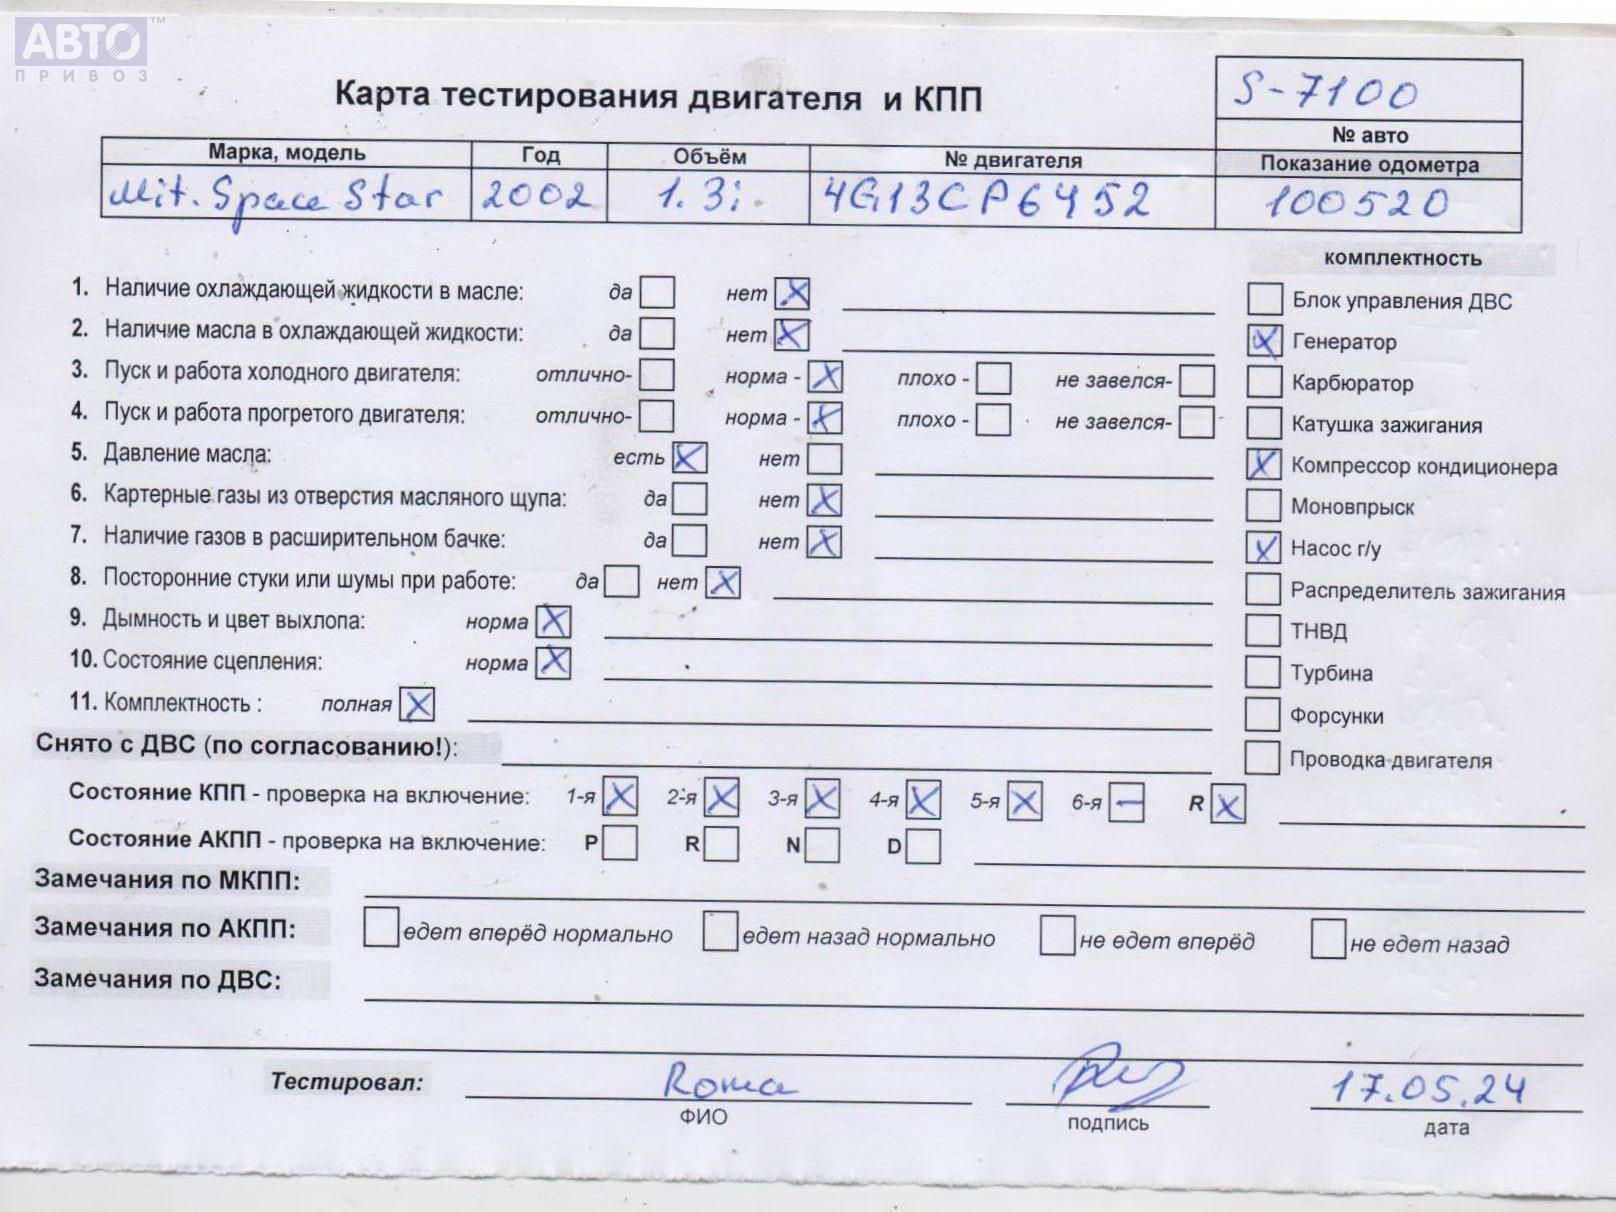 АВТО™
ПРИВОЗ
Карта тестирования двигателя и КПП
S-7100
№ авто
Марка, модель Год Объём № двигателя Показание одометра
Mit. Space Star 2002 1.3i 4G13CP6452 100520
комплектность
1. Наличие охлаждающей жидкости в масле: да нет X
Блок управления ДВС
2. Наличие масла в охлаждающей жидкости: да нет X
X Генератор
3. Пуск и работа холодного двигателя: отлично- норма - X плохо - не завелся-
Карбюратор
4. Пуск и работа прогретого двигателя: отлично- норма - X плохо - не завелся-
Катушка зажигания
5. Давление масла: есть X нет
X Компрессор кондиционера
6. Картерные газы из отверстия масляного щупа: да нет X
Моновпрыск
7. Наличие газов в расширительном бачке: да нет X
X Насос г/у
8. Посторонние стуки или шумы при работе: да нет X
Распределитель зажигания
9. Дымность и цвет выхлопа: норма X
ТНВД
10. Состояние сцепления: норма X
Турбина
11. Комплектность : полная X
Форсунки
Снято с ДВС (по согласованию!):
Проводка-двигателя
Состояние КПП - проверка на включение: 1-я X 2-я X 3-я X 4-я X 5-я X 6-я – R X
Состояние АКПП - проверка на включение: P R N D
Замечания по МКПП:
Замечания по АКПП: едет вперёд нормально едет назад нормально не едет вперёд не едет назад
Замечания по ДВС:
Тестировал: Roma 17.05.24
ФИО подпись дата